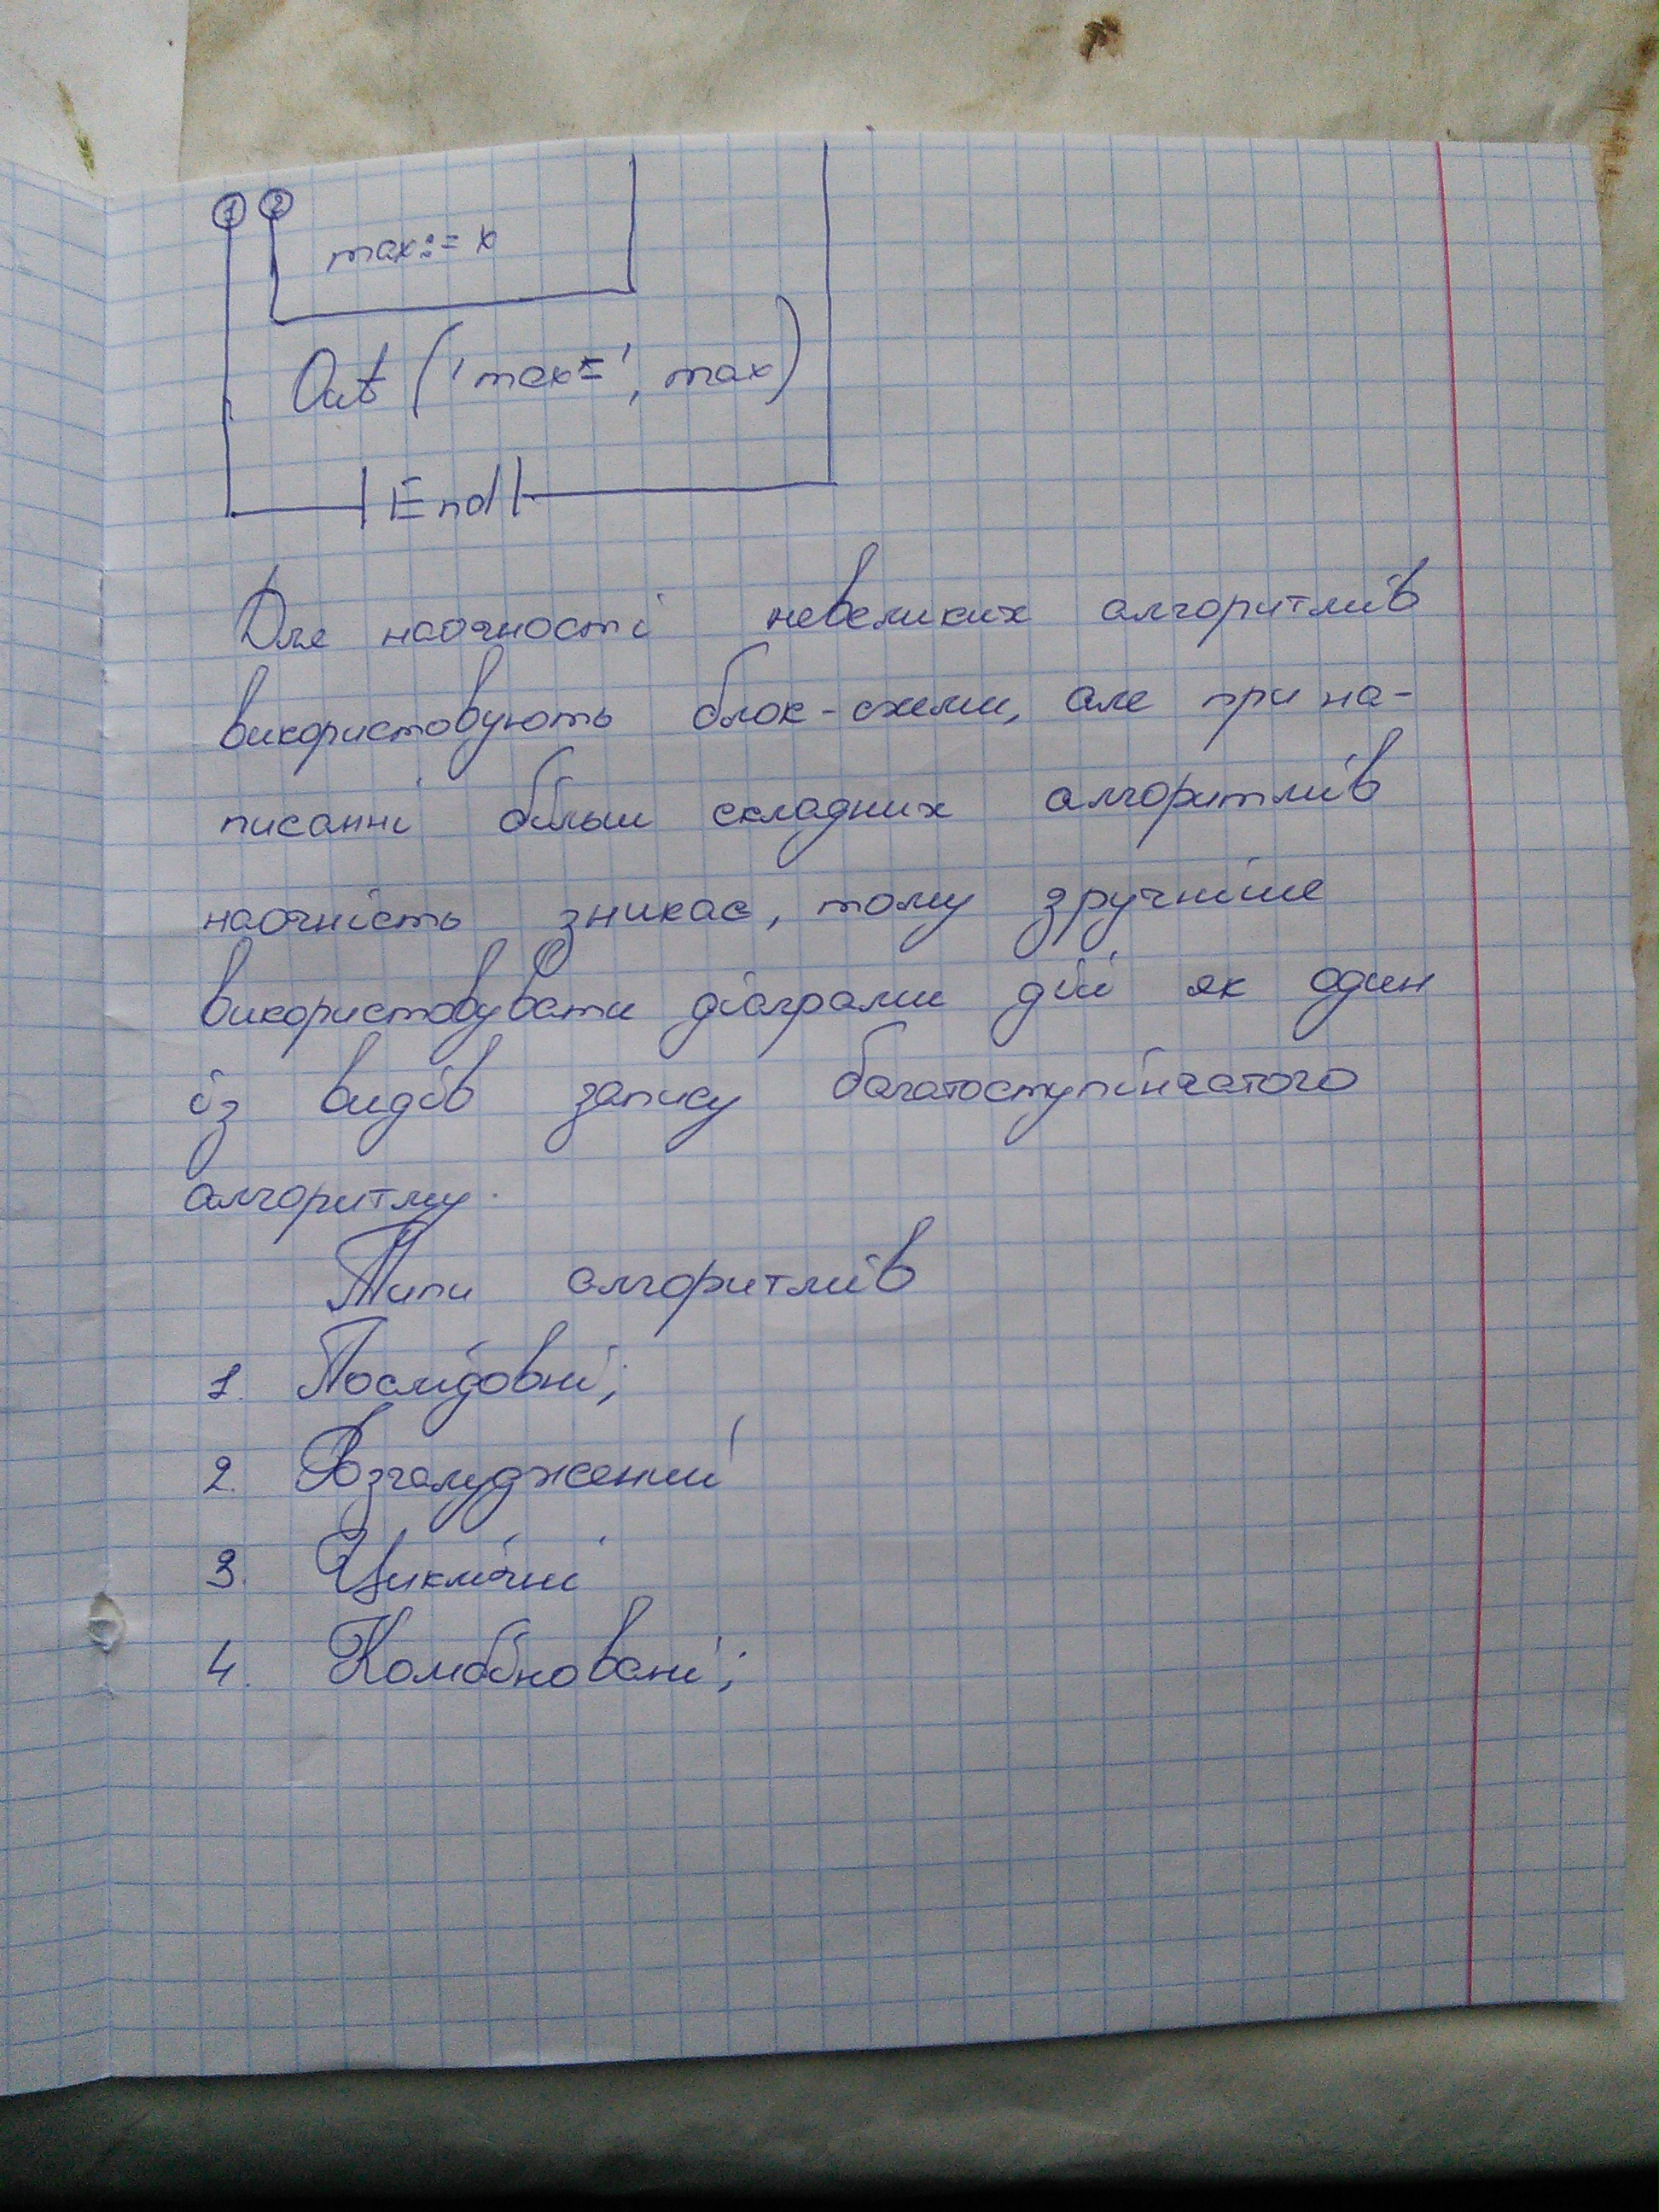 1 2
max:= x
Out ('max=', max)
End
Для наочності невеликих алгоритмів
використовують блок-схеми, але при на-
писанні більш складних алгоритмів
наочність зникає, тому зручніше
використовувати діаграми дій як один
із видів запису багатоступінчастого
алгоритму.
Типи алгоритмів
1. Послідовні;
2. Розгалуджений
3. Циклічні
4. Комбіновані;